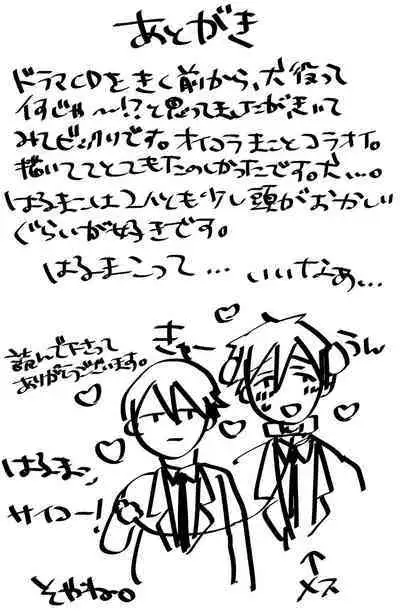 あとがき
ドラマCDをきく前から、犬役って
何じゃ〜!?と思ってましたが、きいて
みてビックリです。オイコラまことコラオイ。
描いててとてもたのしかったです。犬…。
はるまこは2人とも少し頭がおかしい
ぐらいが好きです。
はるまこって… いいなぁ…
読んで下さって
ありがとうございます。
きゃー
うん
はるまこ
サイコー!
そやね。
↑
メス